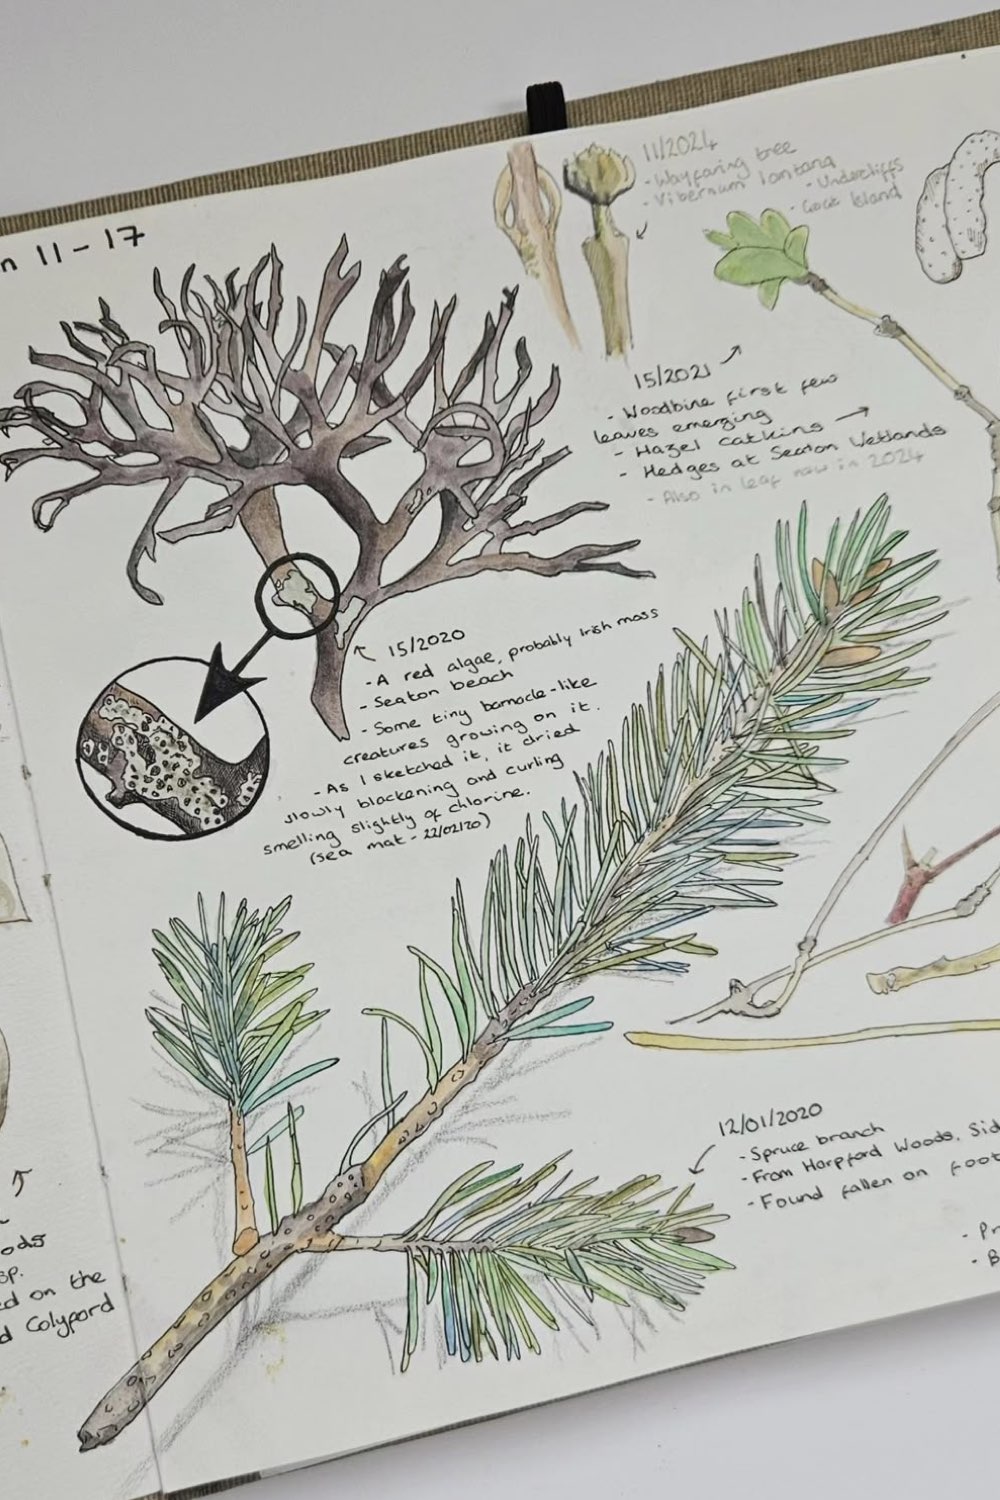 n 11-17
11/2024
- Wayfaring tree
- Vibernum lantana
- Undercliffs
- Goat Island
15/2021
- Woodbine first few
leaves emerging
- Hazel catkins
- Hedges at Seaton Wetlands
- Also in leaf now in 2024
15/2020
- A red algae, probably Irish moss
- Seaton beach
- Some tiny barnacle-like
creatures growing on it.
- As I sketched it, it dried
slowly blackening and curling
smelling slightly of chlorine.
(sea mat - 22/02/20)
12/01/2020
- Spruce branch
- From Harpford Woods, Sid
- Found fallen on foot
- Pr
- B
ods
sp.
ed on the
d Colyford